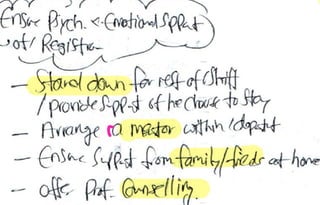 Ensure Psych. & Emotional Support
of Registrar
- Stand down for rest of shift
/ provide support if he choose to stay
- Arrange a mentor within / dept
- Ensure support from family/friends at home
- offer Prof. Counselling.